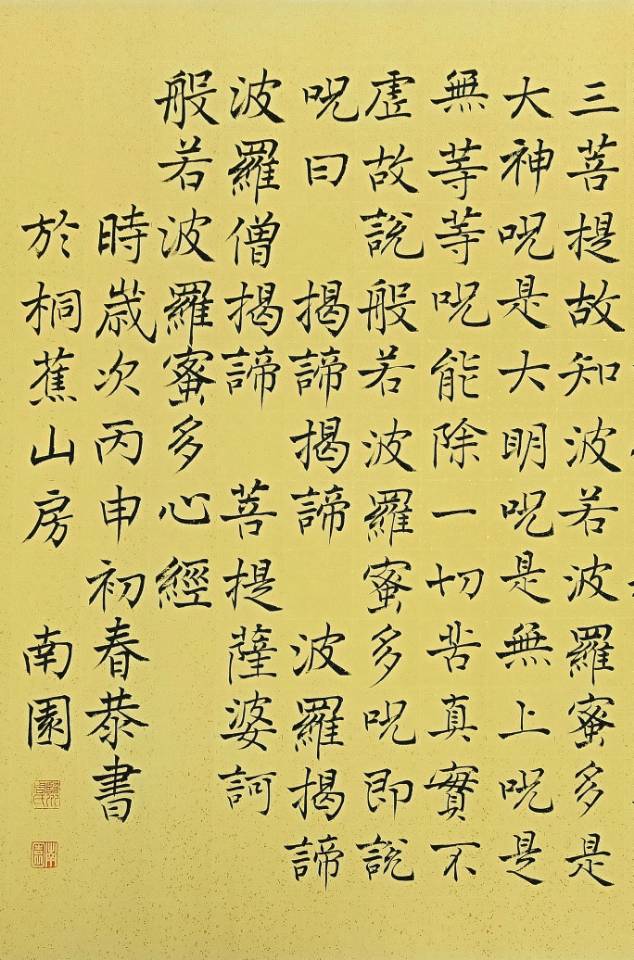 三菩提故知波若波羅蜜多是
大神呪是大明呪是無上呪是
無等等呪能除一切苦真實不
虛故說般若波羅蜜多呪即說
呪曰 揭諦揭諦 波羅揭諦
波羅僧揭諦 菩提薩婆訶
般若波羅蜜多心經
時歲次丙申初春恭書
於桐蕉山房 南園